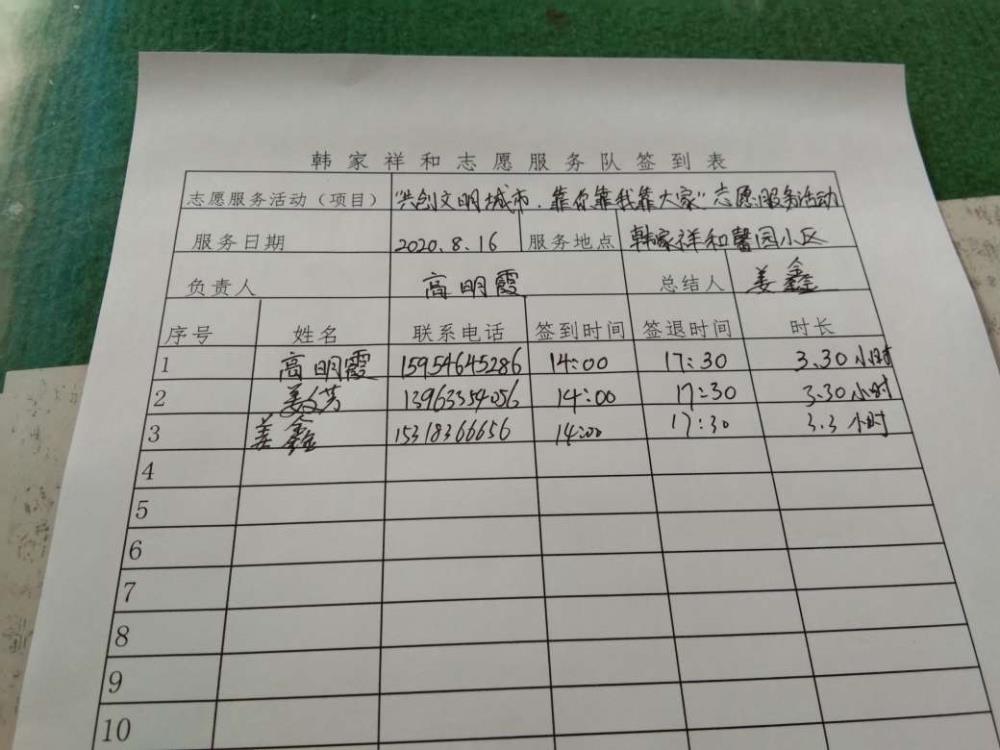 韩家祥和志愿服务队签到表
志愿服务活动（项目） “共创文明城市．靠你靠我靠大家”志愿服务活动
服务日期 2020.8.16 服务地点 韩家祥和馨园小区
负责人 高明霞 总结人 姜鑫
序号 姓名 联系电话 签到时间 签退时间 时长
1 高明霞 15954645286 14:00 17:30 3.30小时
2 姜文芳 13963354056 14:00 17:30 3.30小时
3 姜鑫 15318366656 14:00 17:30 3.3小时
4
5
6
7
8
9
10